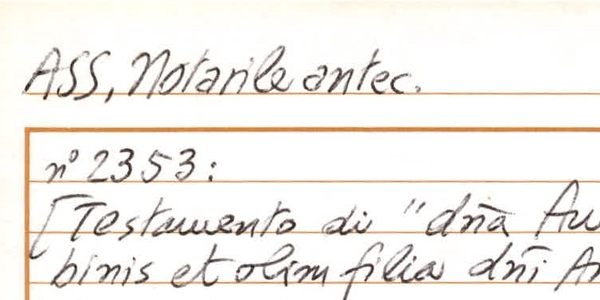 ASS, Notarile antec.
n° 2353:
[Testamento di "dn̄a
binis et olim filia dn̄i